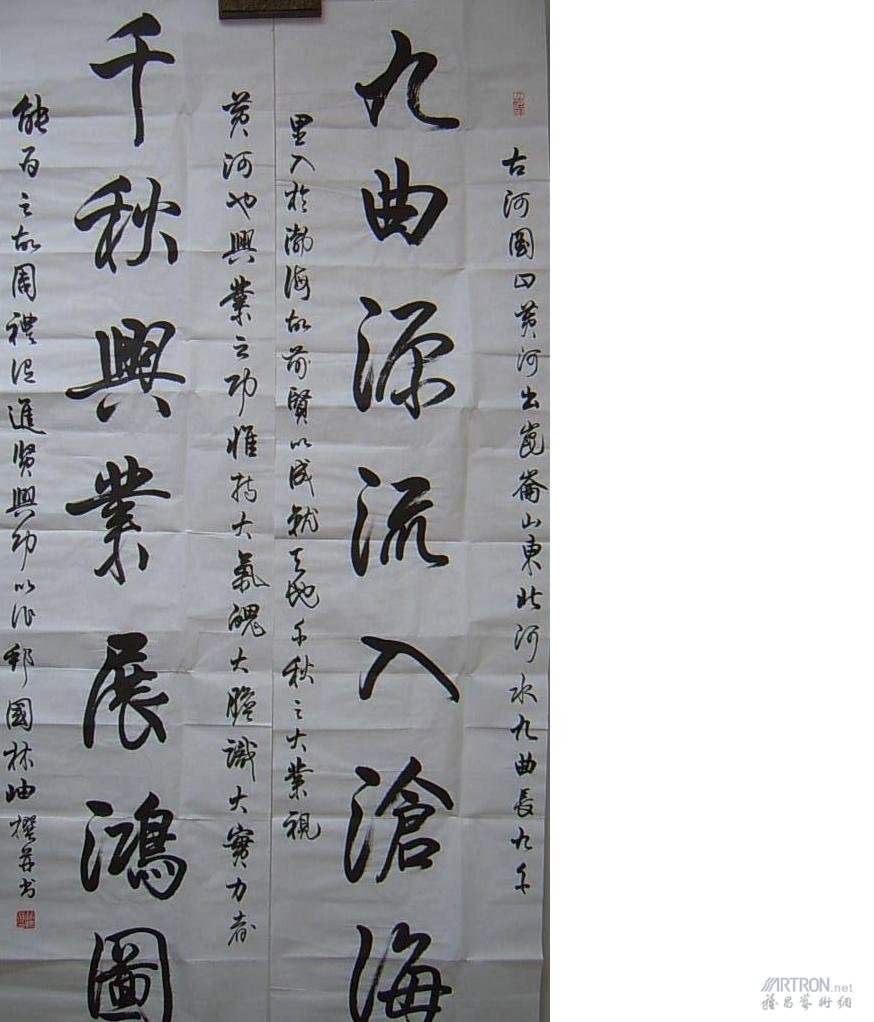 古河圖曰黃河出崑崙山東北河水九曲長九千
九曲源流入滄海
里入於渤海故前賢以成就天地千秋之大業視
黃河也興業之功惟持大氣魄大膽識大實力者
千秋興業展鴻圖
能為之故周禮進賢興功以作邦國林岫撰并书
ARTRON.net
雅昌藝術網